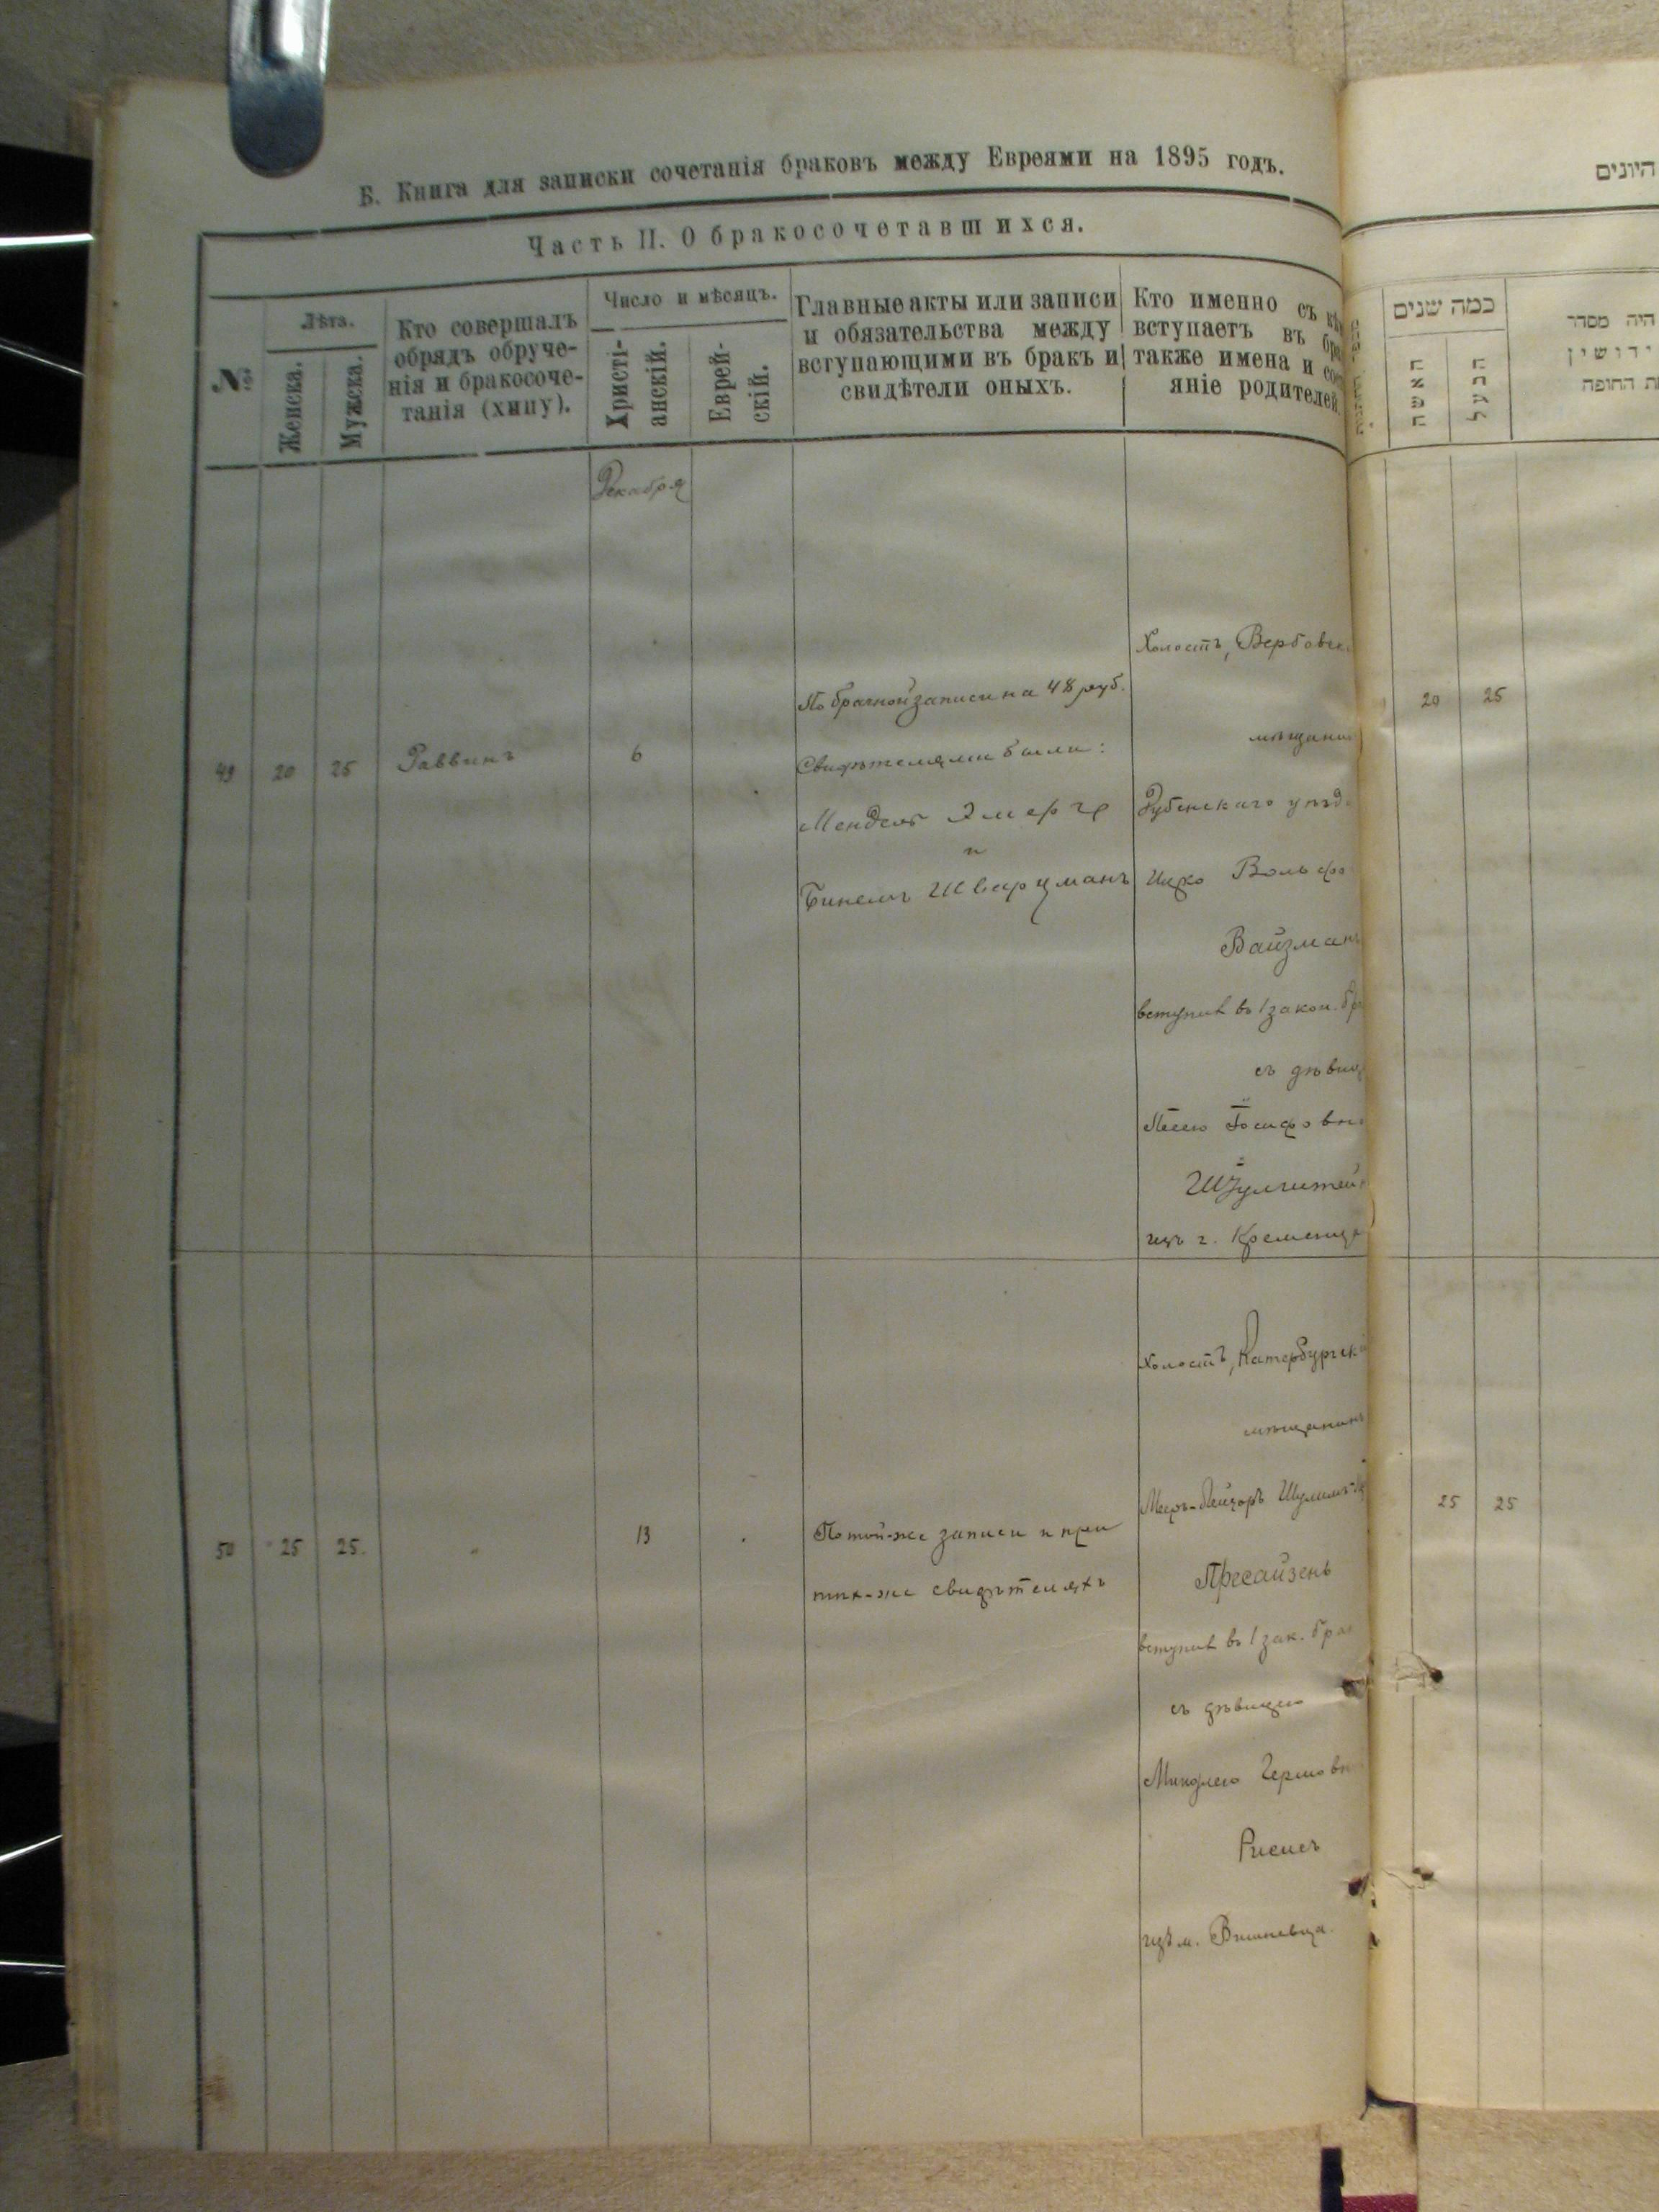 Б. Книга для записки сочетанія браковъ между Евреями на 1895 годъ.
Часть II. О бракосочетавшихся.
№
Лѣта.
Женска.
Мужска.
Кто совершалъ
обрядъ обруче-
нія и бракосоче-
танія (хипу).
Число и мѣсяцъ.
Христі-
анскій.
Еврей-
скій.
Главные акты или записи
и обязательства между
вступающими въ бракъ и
свидѣтели оныхъ.
Кто именно съ
вступаетъ въ
также имена и
яніе родителей.
Декабря
49 20 25 Раввинъ 6
По брачной записи на 48 руб.
Свидѣтелями были:
Мендель
и
Шварцманъ
Холостъ,
мѣщанин
Дубенскаго уѣзд
Ицко Вольфо
Вайзманъ
вступил въ 1 закон. бр
съ дѣвиц
Іосифовн
изъ г. Кременца
50 25 25 13
По той-же записи и при
тѣх-же свидѣтеляхъ
Холостъ, Катербургск
мѣщанинъ
вступил въ 1 зак. бра
съ дѣвицею
изъ м. Вишневца.
היונים
כמה שנים
האשה
הבעל
היה מסדר
ידושין
ת החופה
20 25
25 25